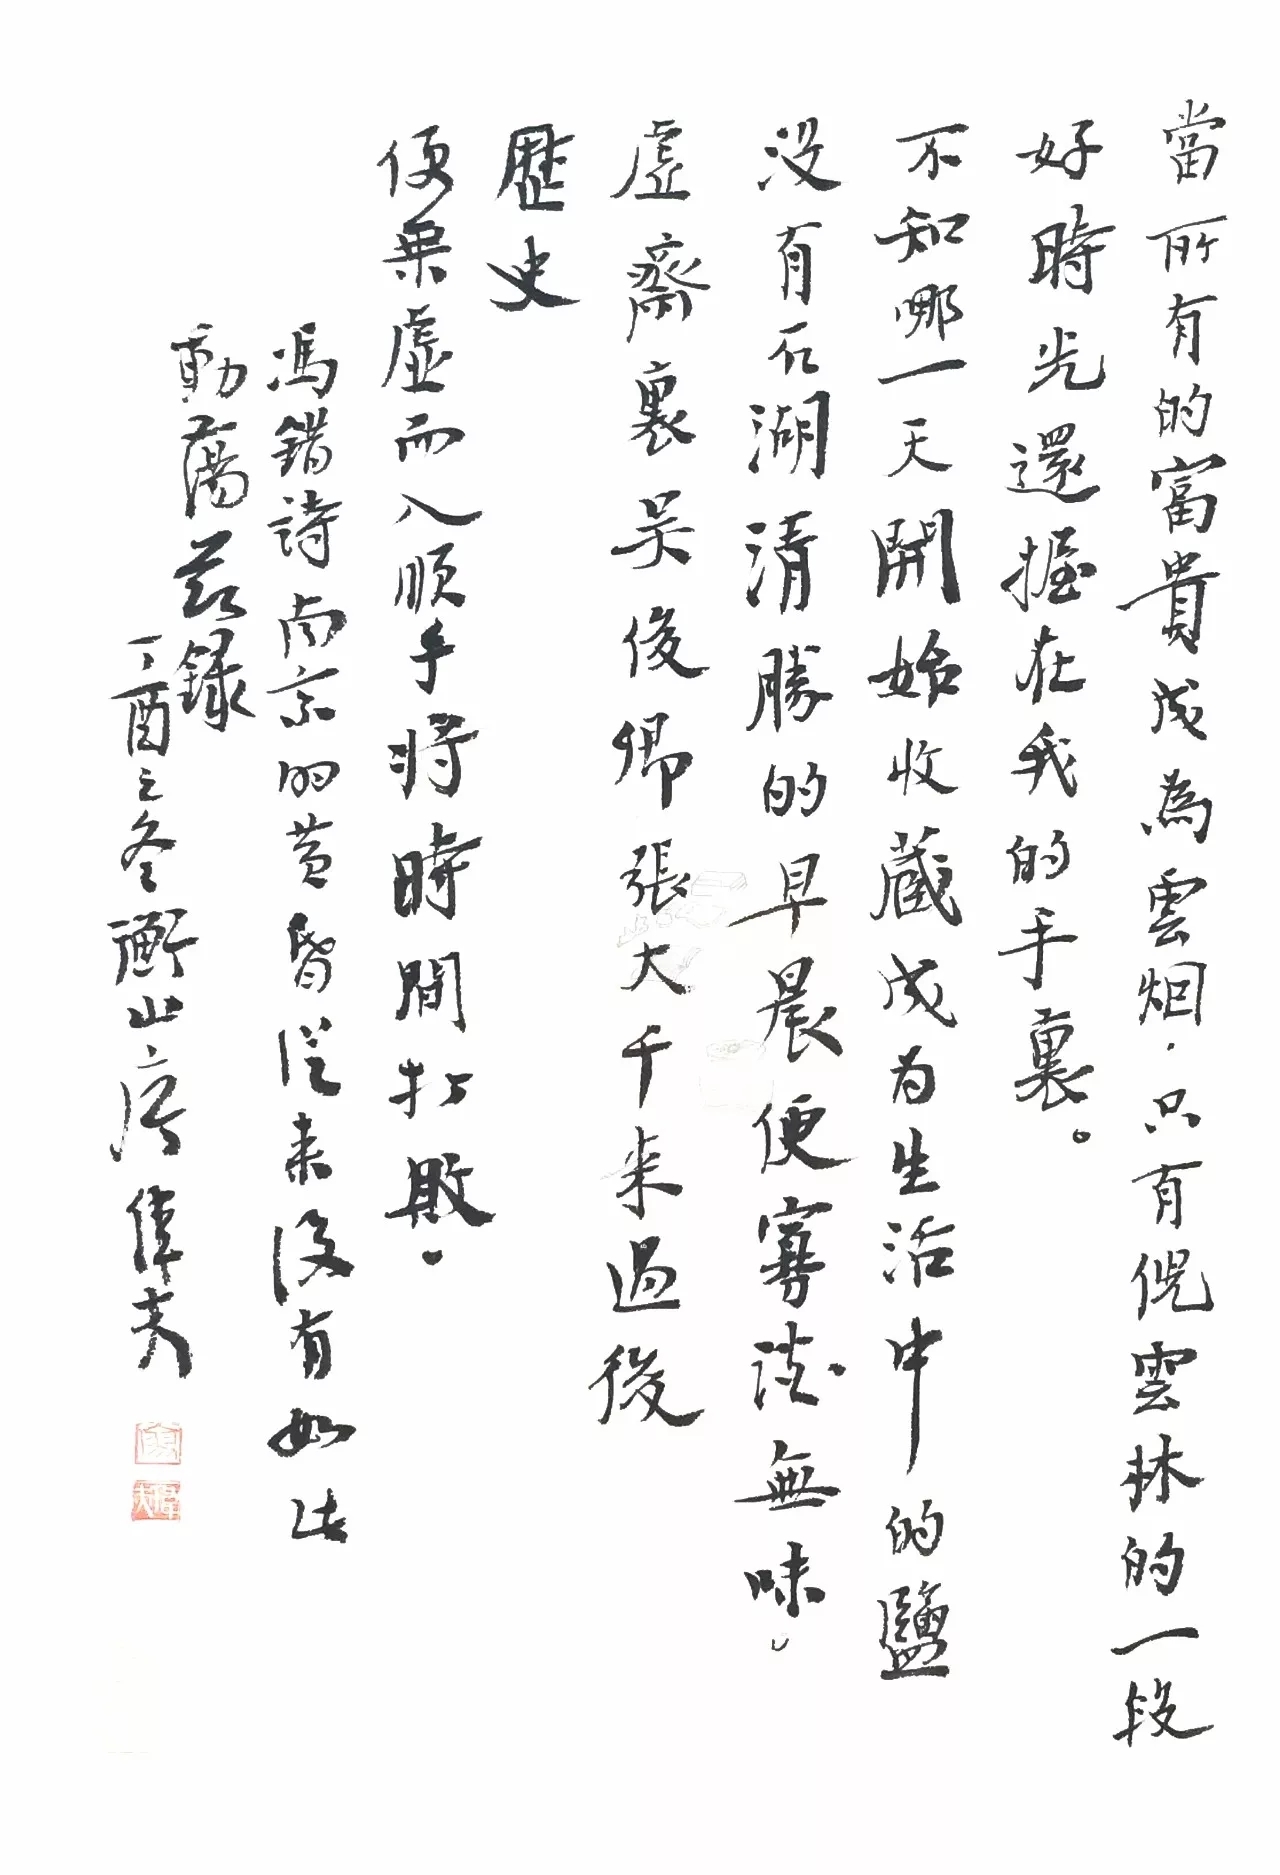 當所有的富貴成為雲烟.只有倪雲林的一段
好時光還握在我的手裏。
不知哪一天開始收藏成为生活中的鹽
没有石湖清勝的早晨便寡淡無味。
虚齋裏吴俊卿張大千来過後
歷史
便乘虚而入順手将時間打敗.
馮錯詩南京的黄昏從来没有如此
動蕩兹録
丁酉之冬衡山 偉夫